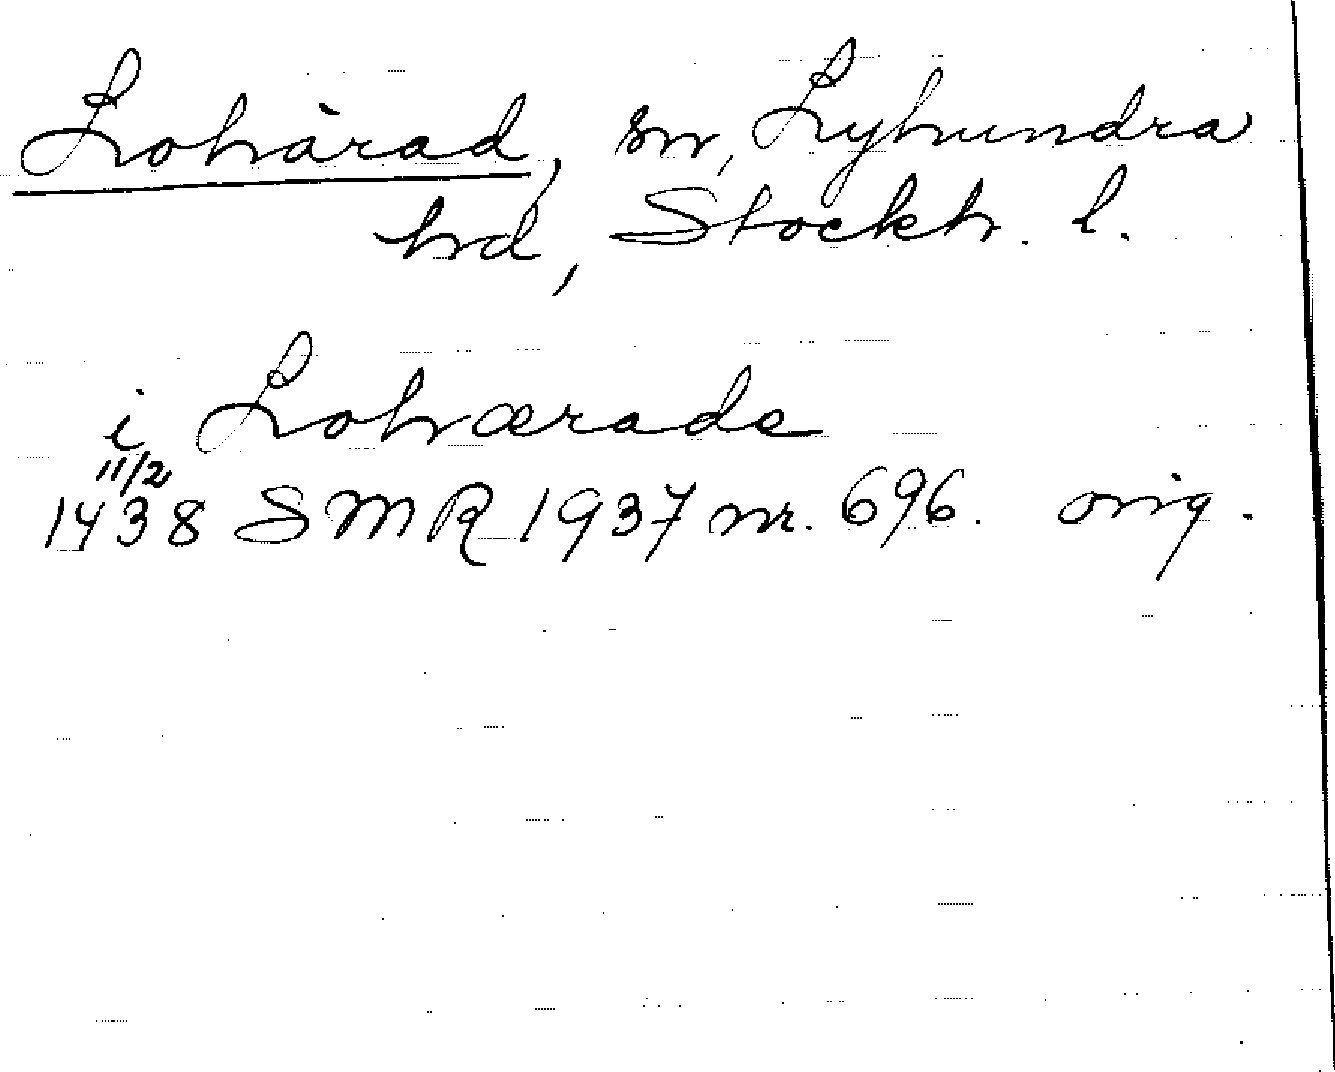 Lohärad, sn, Lyhundra
hd, Stockh. l.
i Lohærade
11/2
1438 SMR 1937 nr. 696. orig.